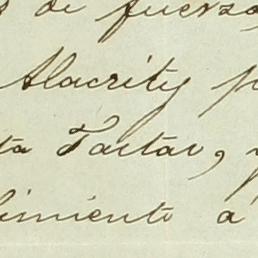 s de fuerza
Alacrity p
ta Tartar, y
limiento á